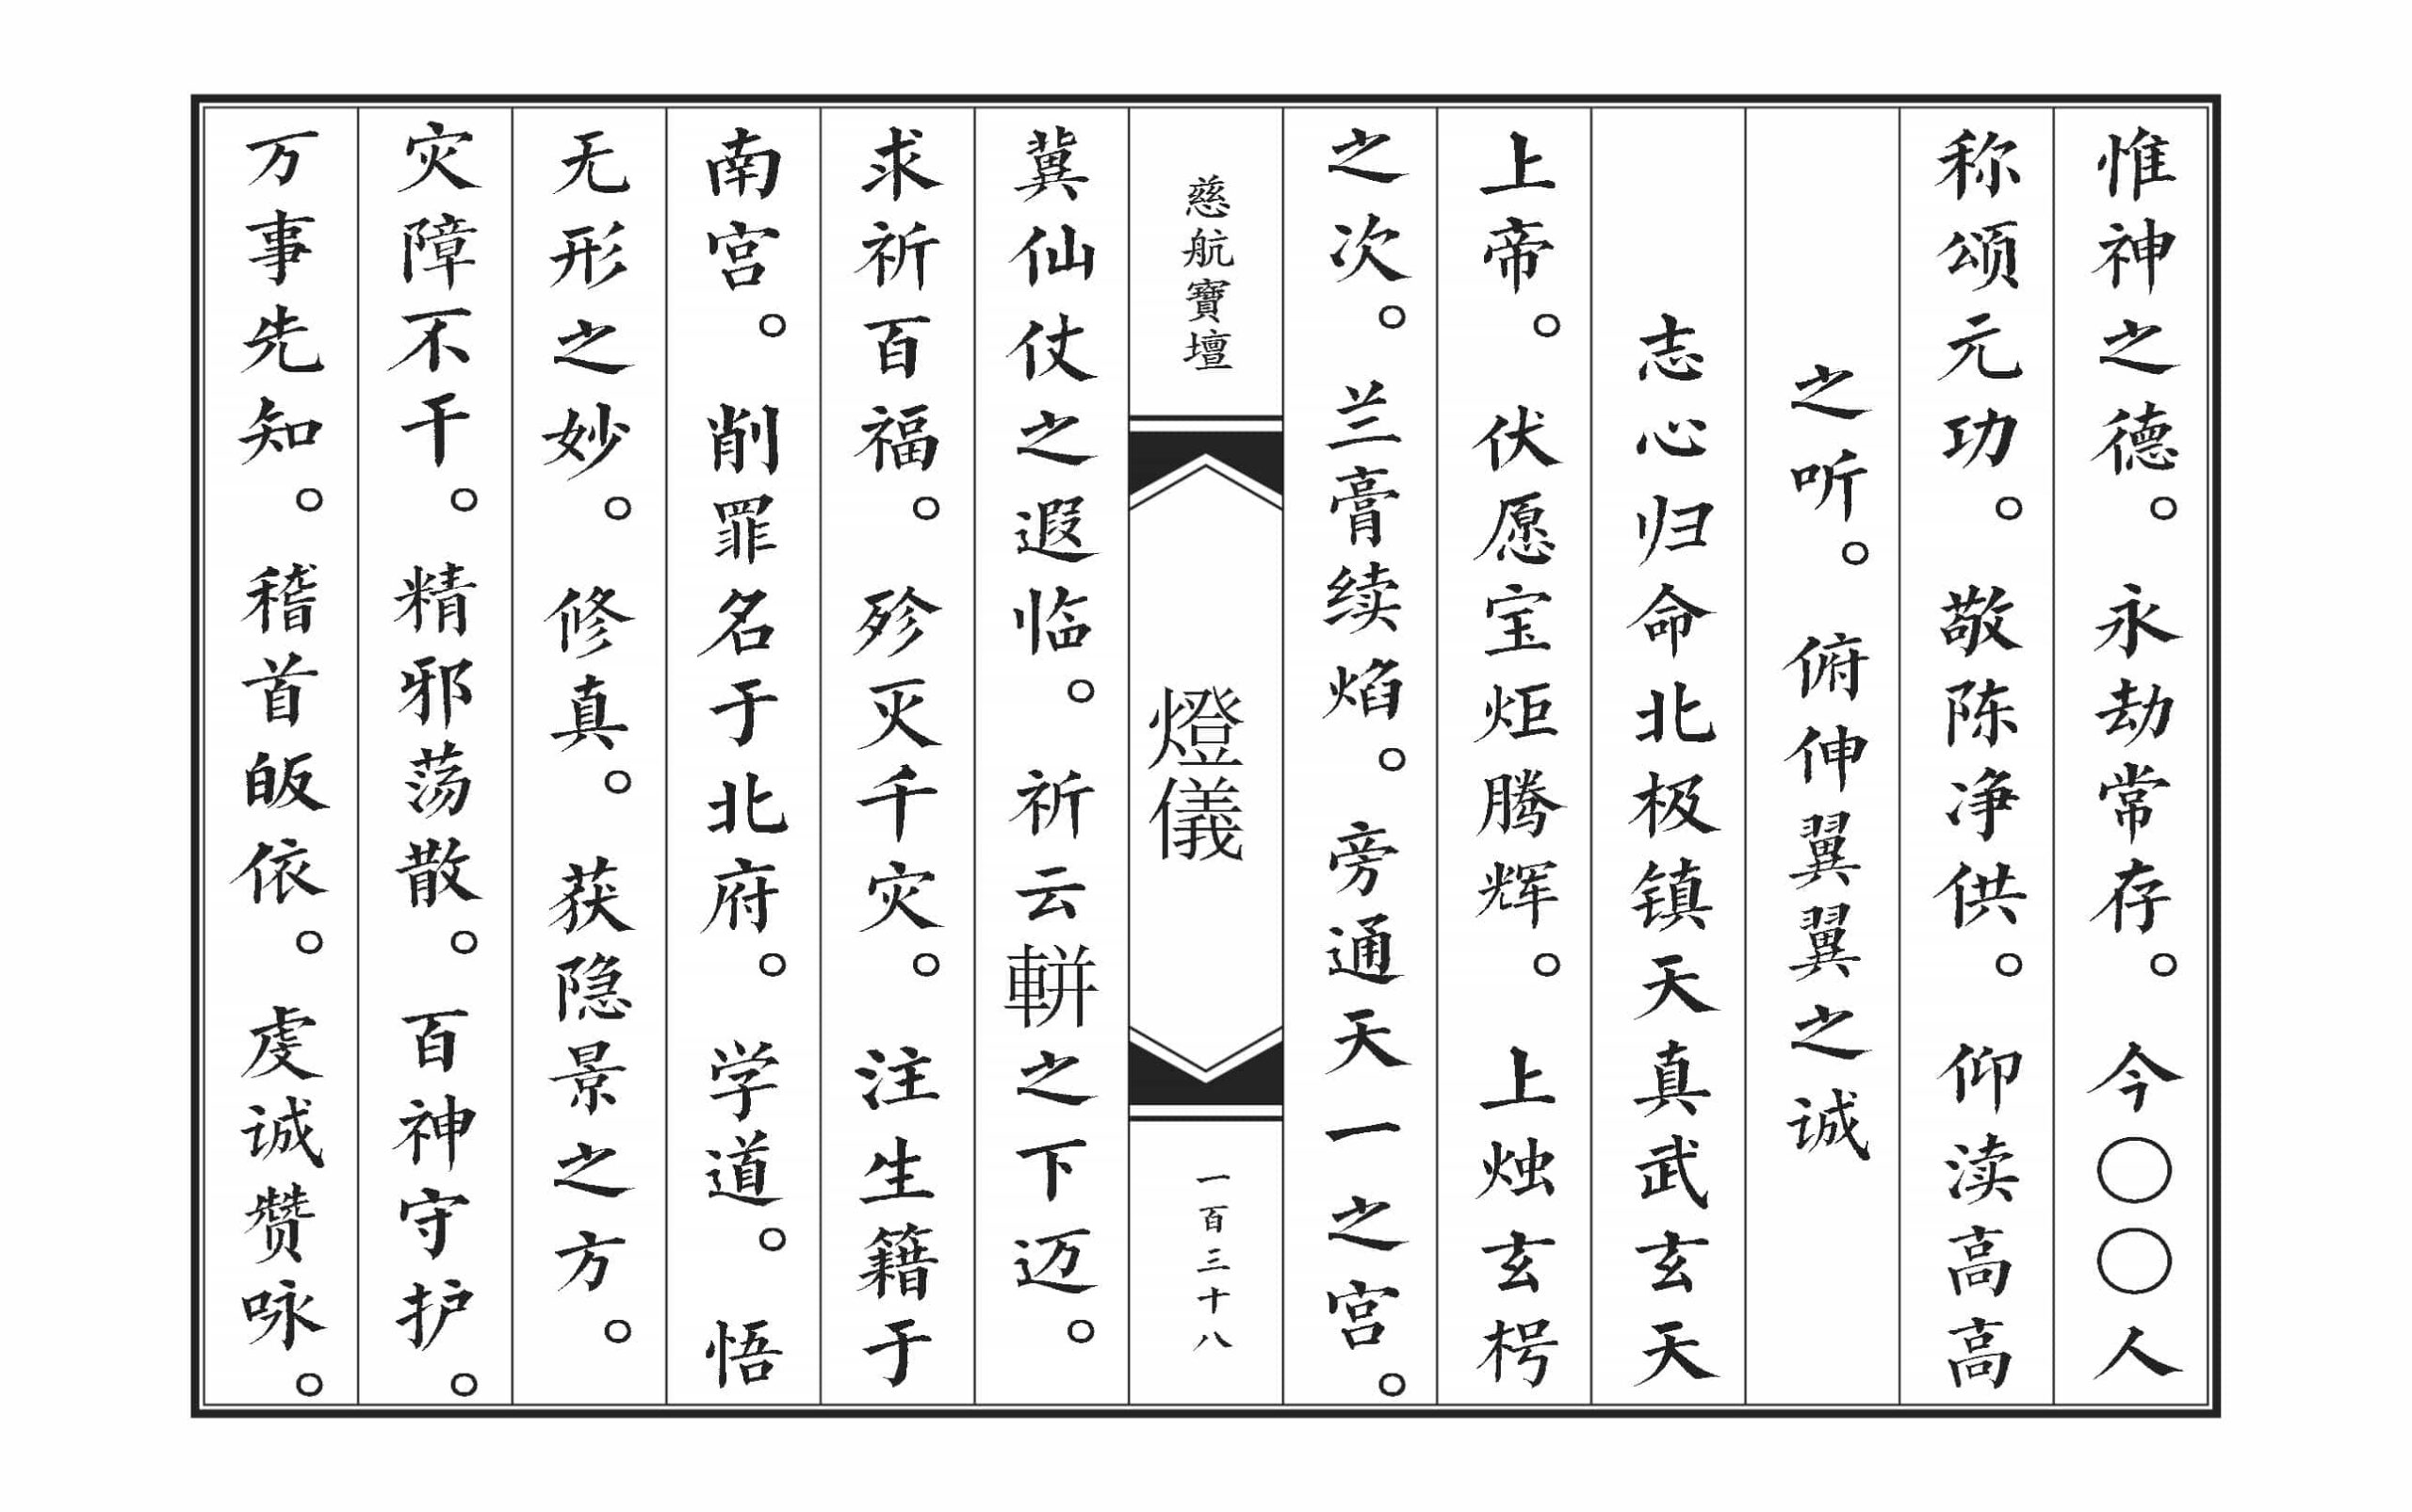 惟神之德。永劫常存。今〇〇人
称颂元功。敬陈净供。仰渎高高
之听。俯伸翼翼之诚
志心归命北极镇天真武玄天
上帝。伏愿宝炬腾辉。上烛玄枵
之次。兰膏续焰。旁通天一之宫。
慈航寶壇
燈儀
一百三十八
冀仙仗之遐临。祈云軿之下迈。
求祈百福。殄灭千灾。注生籍于
南宫。削罪名于北府。学道。悟
无形之妙。修真。获隐景之方。
灾障不干。精邪荡散。百神守护。
万事先知。稽首皈依。虔诚赞咏。